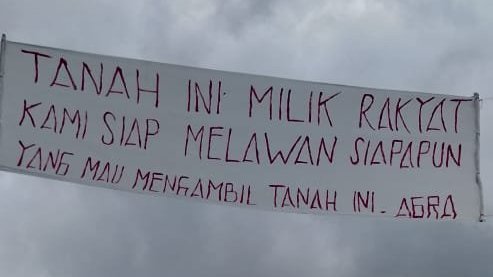 TANAH INI MILIK RAKYAT
KAMI SIAP MELAWAN SIAPAPUN
YANG MAU MENGAMBIL TANAH INI. AGRA